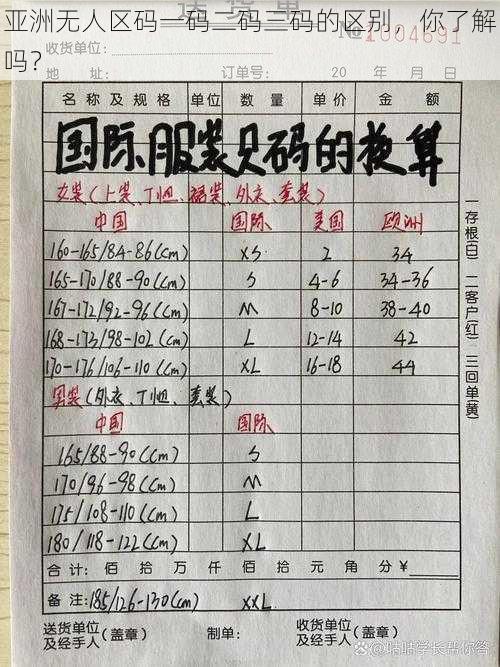 送货单
亚洲无人区码一码二码三码的区别，你了解吗？
收货单位：
№1004691
地址：
订单号：
20 年 月 日
名称及规格 单位 数量 单价 金额
国际服装尺码的换算
女装(上装、T恤、裙装、外衣、套装)
中国 国际 美国 欧洲
160-165/84-86(cm) XS 2 34
165-170/88-90(cm) S 4-6 34-36
167-172/92-96(cm) M 8-10 38-40
168-173/98-102(cm) L 12-14 42
170-176/106-110(cm) XL 16-18 44
男装(外衣、T恤、套装)
中国 国际
165/88-90(cm) S
170/96-98(cm) M
175/108-110(cm) L
180/118-122(cm) XL
合计： 佰 拾 万 仟 佰 拾 元 角 分 ¥
备注：185/126-130(cm) XXL
送货单位及经手人(盖章)
制单：
收货单位及经手人(盖章)
一存根(白) 二客户(红) 三回单(黄)
@咕咕学长帮你答